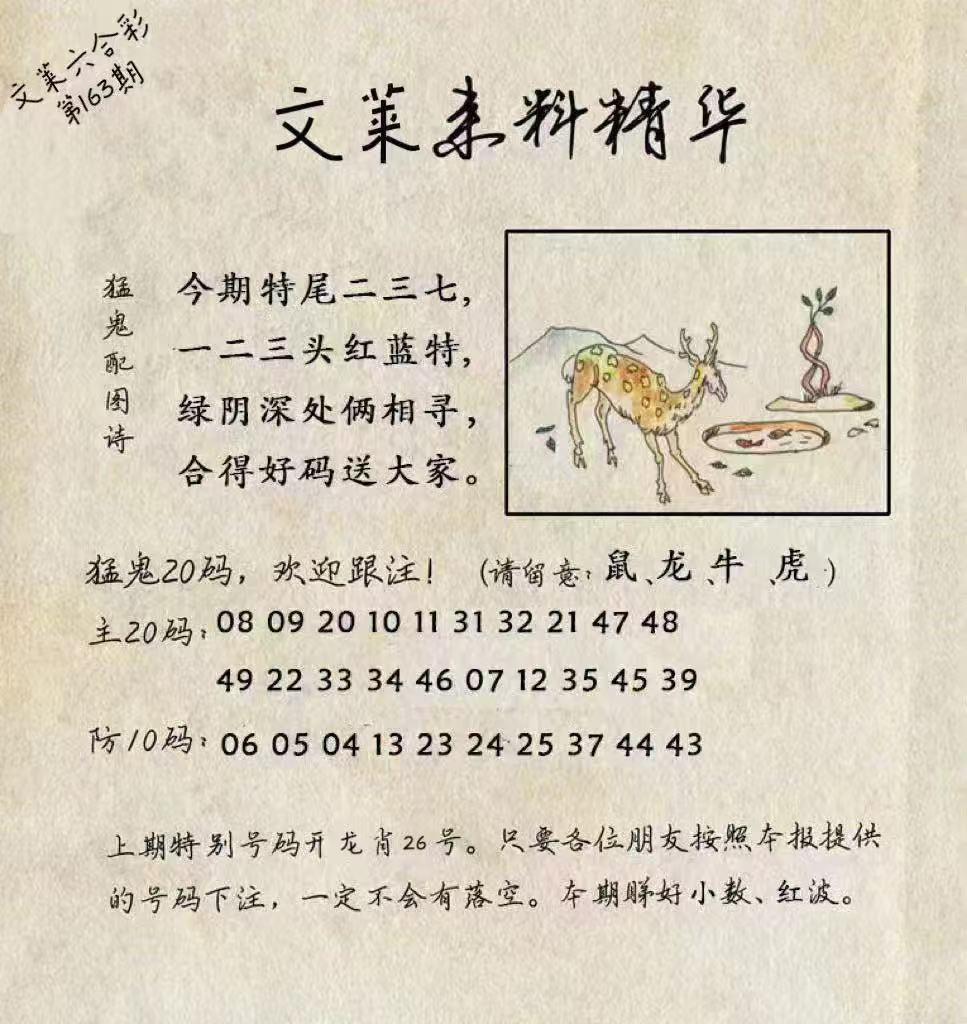 文莱六合彩
第163期
文莱来料精华
猛鬼配图诗
今期特尾二三七，
一二三头红蓝特，
绿阴深处俩相寻，
合得好码送大家。
猛鬼20码，欢迎跟注！（请留意：鼠、龙、牛、虎）
主20码：08 09 20 10 11 31 32 21 47 48
49 22 33 34 46 07 12 35 45 39
防10码：06 05 04 13 23 24 25 37 44 43
上期特别号码开龙肖26号。只要各位朋友按照本报提供
的号码下注，一定不会有落空。本期睇好小数、红波。